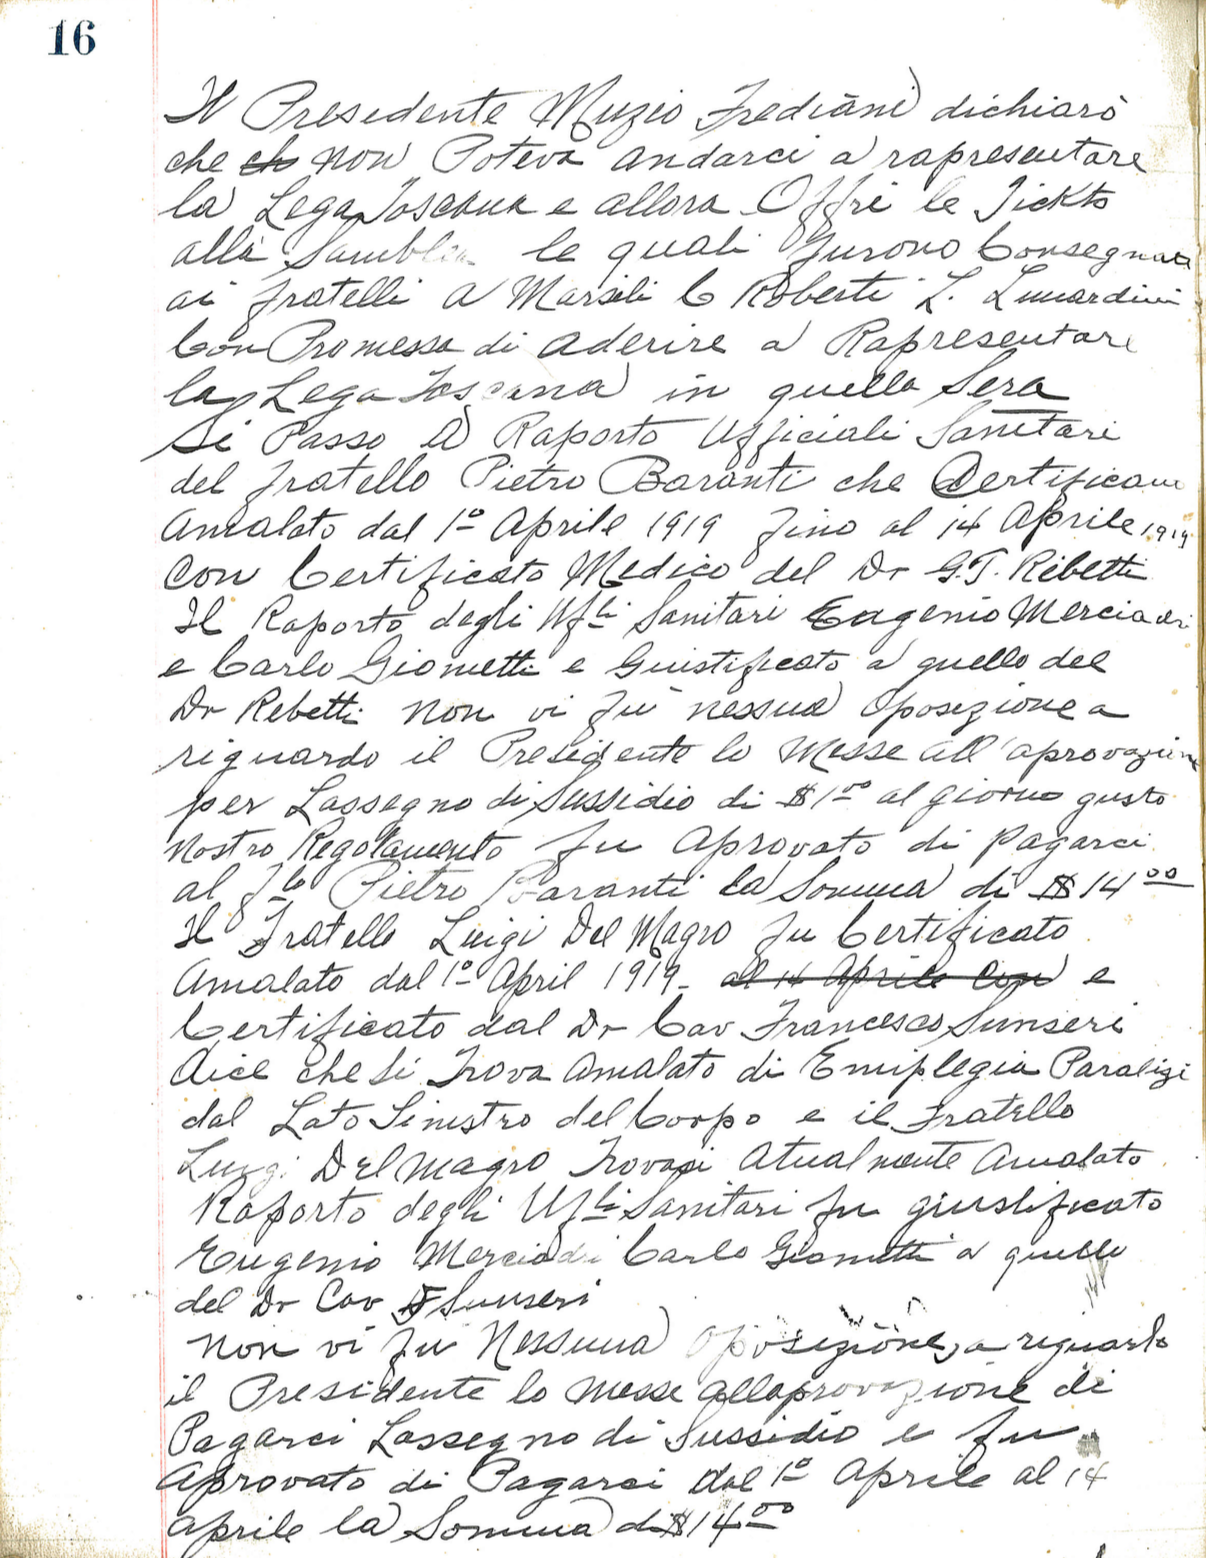 16
Il Presidente Muzio Frediani dichiarò
che ch non Poteva andarci a rapresentare
la Lega Toscana e allora Offri le Tickts
alla Samblea le quali furono Consegnate
ai fratelli A Marsili C Roberti L. Lunardini
Con Promessa di aderire a Rapresentare
la Lega Toscana in quella Sera
Si Passo A Raporto Ufficiali Sanitari
del fratello Pietro Baranti che Certificano
Amalato dal 1º Aprile 1919 fino al 14 Aprile 1919
Con Certificato Medico del Dr G.T. Ribetti
Il Raporto degli Ufli Sanitari Eugenio Merciadri
e Carlo Giometti e Giustificato a quello del
Dr Rebetti non vi fu nessua Oposizione a
riguardo il Presidente lo Messe all'aprovazione
per Lassegno di Sussidio di $100 al giorno gusto
nostro Regolamento fu Aprovato di pagarci
al flo Pietro Baranti la Somma di $1400
Il Fratello Luigi Del Magro fu Certificato
Amalato dal 1º April 1919 - al 14 Aprile Con e
Certificato dal Dr Cav Francesco Sunseri
dice che si Trova amalato di Emiplegia Paralizi
dal Lato Sinistro del Corpo e il Fratello
Luigi Del Magro Trovasi Atualmente Amalato
Raporto degli Ufli Sanitari fu giustificato
Eugenio Merciadri Carlo Giometti a quello
del Dr Cav F Sunseri
Non vi fu Nessuna Oposizione, a riguardo
il Presidente lo messe allaprovazione di
Pagarci Lassegno di Sussidio e fu
Aprovato di Pagarci dal 1º Aprile al 14
Aprile la Somma di $1400